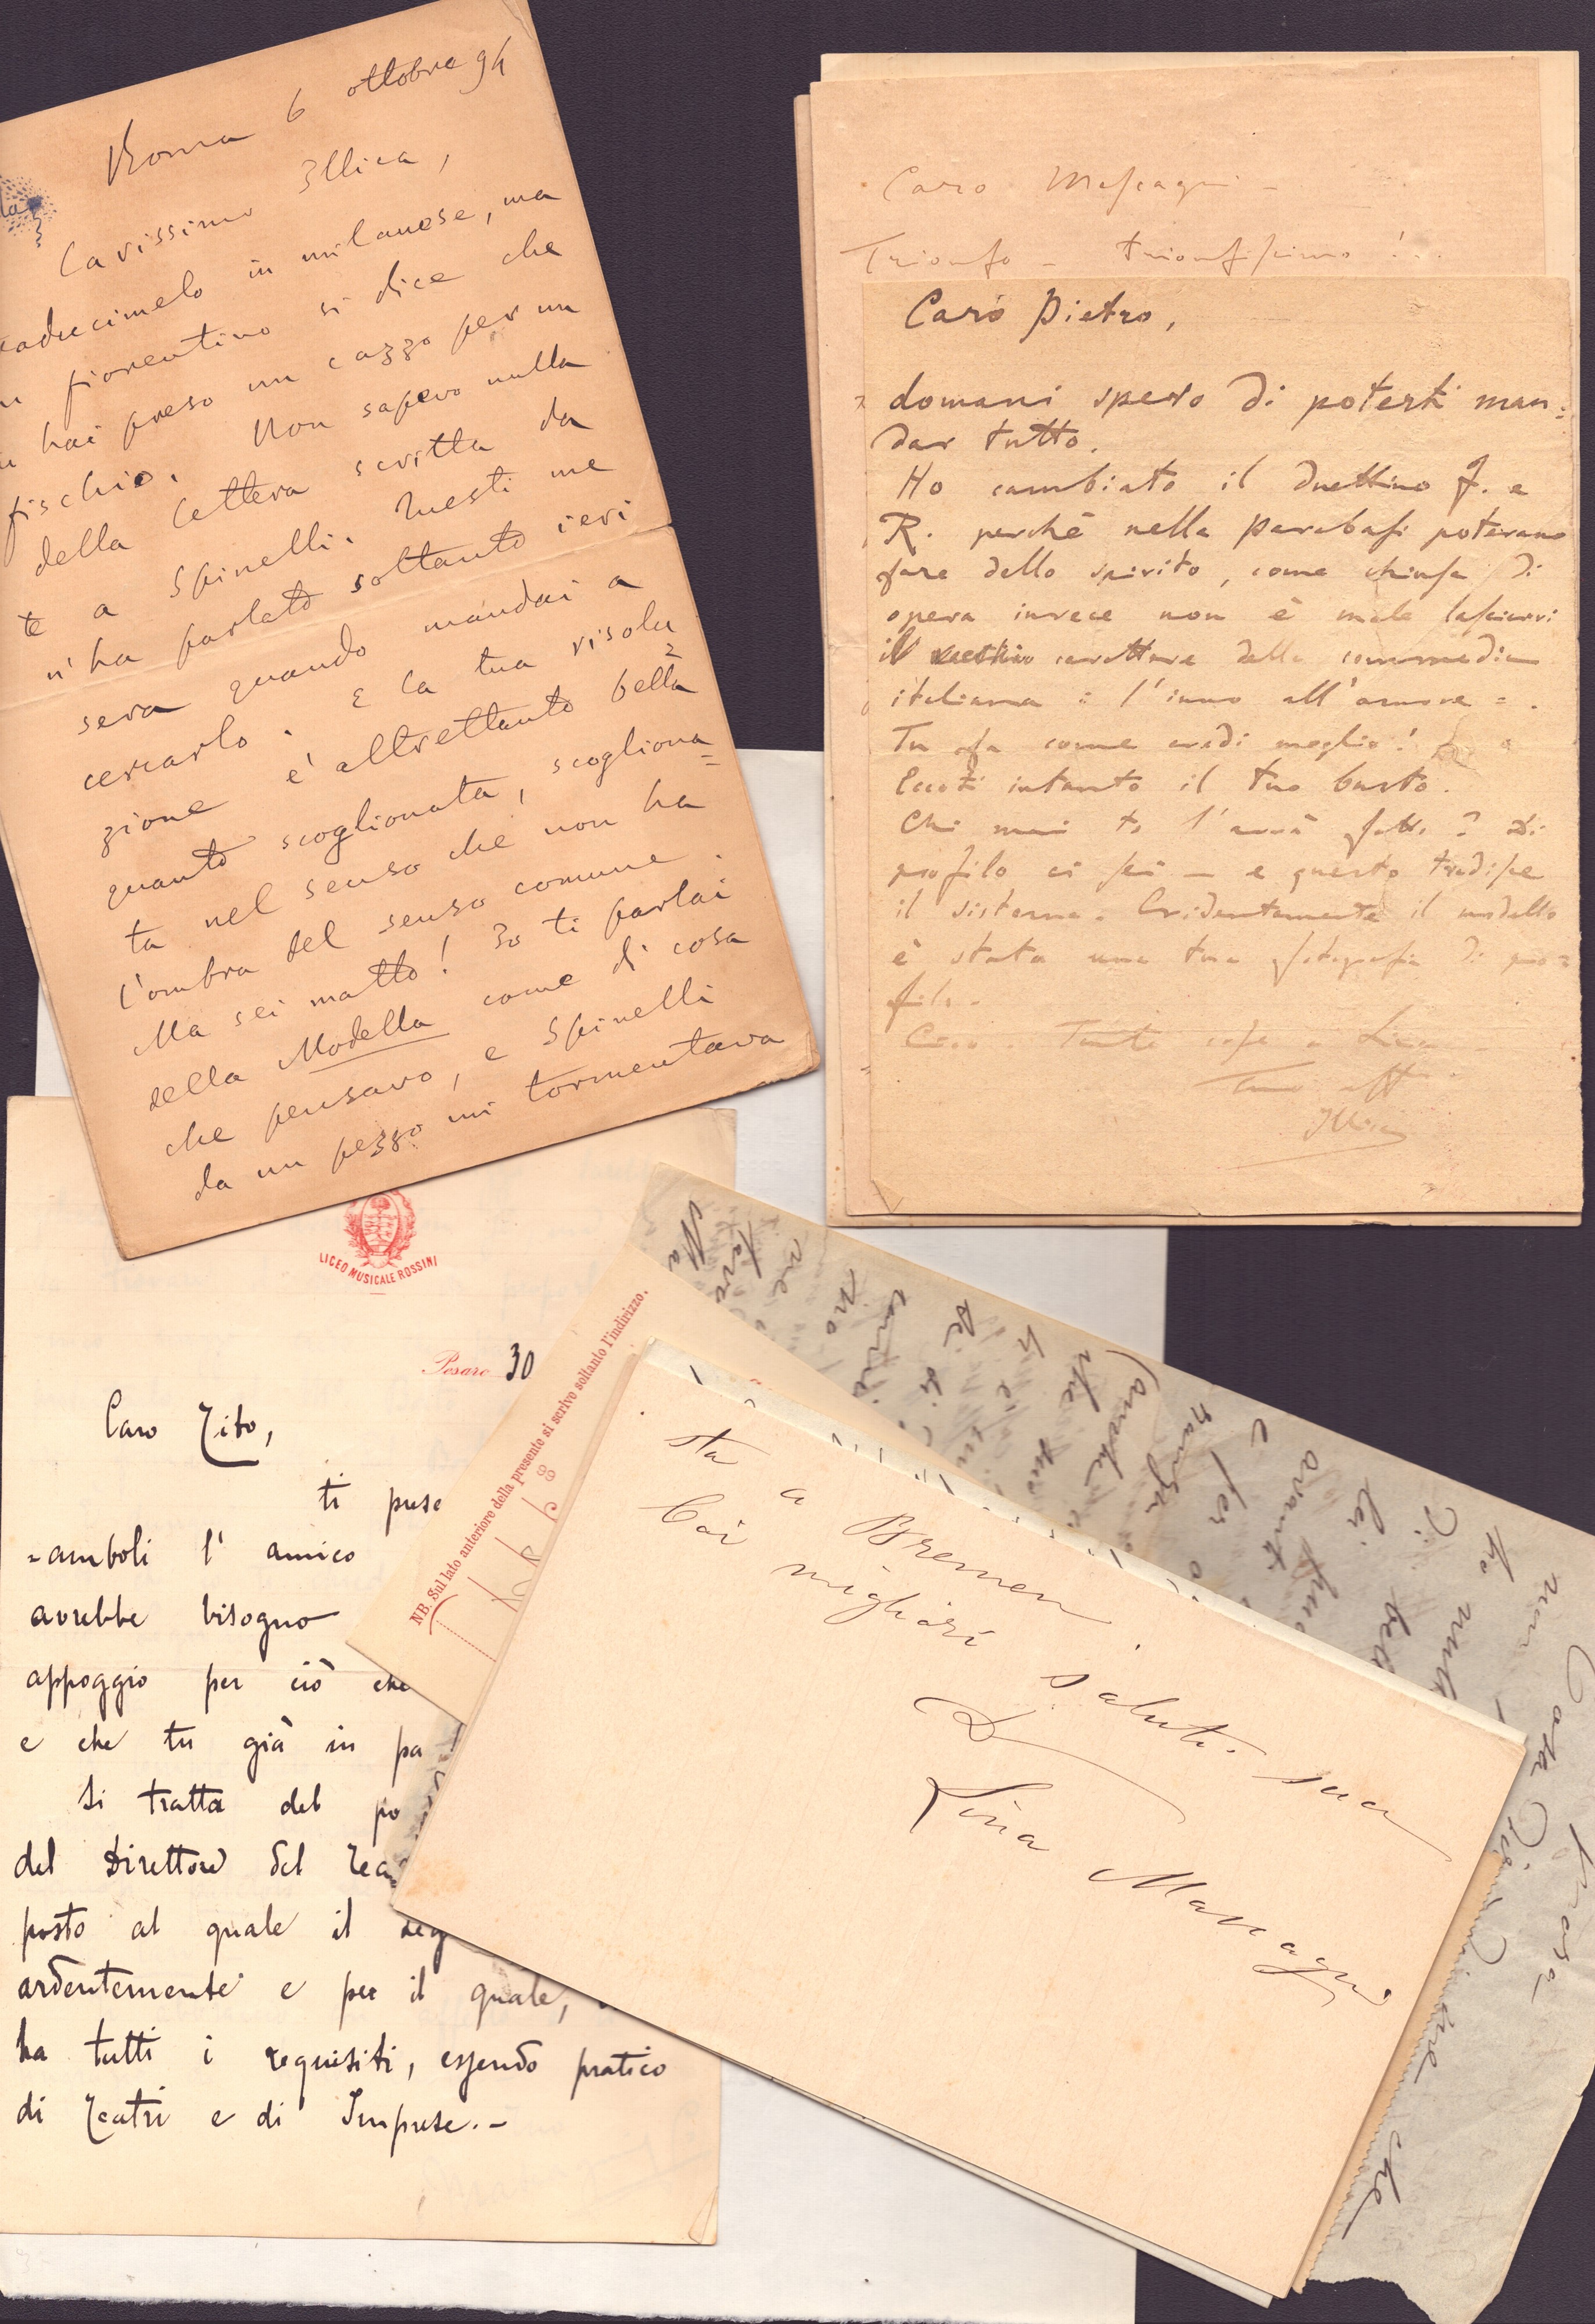 Roma 6 ottobre 94
Carissimo Illica,
raducimelo in milanese, ma
fiorentino si dice che
hai preso un cazzo per un
fischio. Non sapevo nulla
della lettera scritta da
te a Spinelli. Questi me
n'ha parlato soltanto ieri
sera quando mandai a
cercarlo. E la tua risolu
zione è altrettanto bella
quanto scoglionata, scogliona=
ta nel senso che non ha
l'ombra del senso comune.
Ma sei matto! Io ti parlai
della Modella come di cosa
che pensavo, e Spinelli
da un pezzo mi tormentava
Caro Mascagni -
Trionfo - trionfissimo!..
Caro Pietro,
domani spero di poterti man=
dar tutto.
Ho cambiato il duettino f. e
R. perchè nella parabasi potevano
fare dello spirito, come chiusa di
opera invece non è male lasciarvi
il carattere della commedia
italiana: l'inno all'amore =.
Tu fa come credi meglio!
Eccoti intanto il tuo busto.
Chi mai te l'avrà fatto? Di
profilo ci sei - e questo tradisce
il sistema. Evidentemente il modello
è stata una tua fotografia di pro=
filo.
Ciao. Tante cose a Lina -
Tuo aff
Illica
LICEO MUSICALE ROSSINI
Pesaro 30
Caro Tito,
ti prese
=amboli l' amico
avrebbe bisogno
appoggio per ciò che
e che tu già in pa
Si tratta del po
del Direttore del Tea
posto al quale il seg
ardentemente e per il quale,
ha tutti i requisiti, essendo pratico
di Teatri e di Imprese.-
NB. Sul lato anteriore della presente si scrive soltanto l'indirizzo.
sta a Bremen.
Coi migliori saluti. sua
Lina Mascagni
(anche
e per
avanti
che